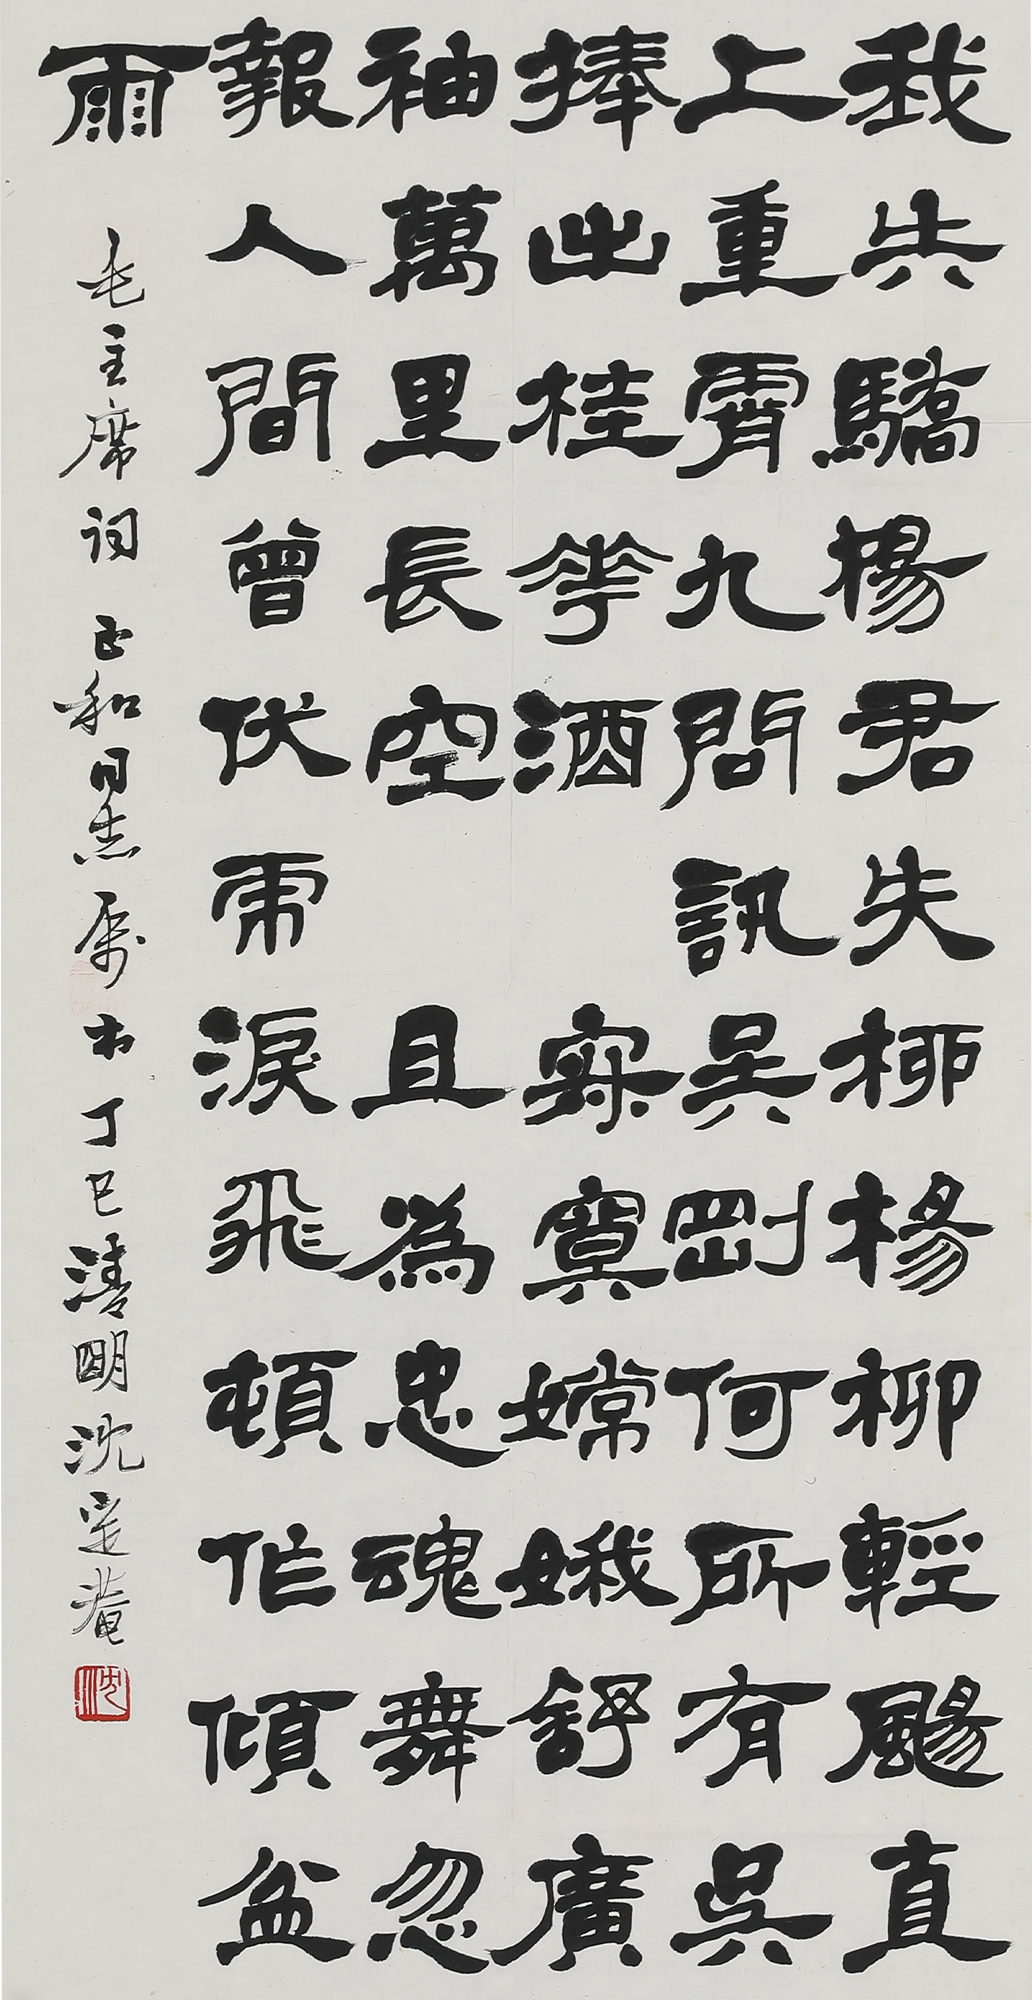 我失驕楊君失柳楊柳輕颺直
上重霄九問訊吳剛何所有吳
捧出桂華酒 寂寞嫦娥舒廣
袖萬里長空 且為忠魂舞忽
報人間曾伏虎淚飛頓作傾盆
雨
毛主席詞 正和同志属书 丁巳清明沈定菴
沈